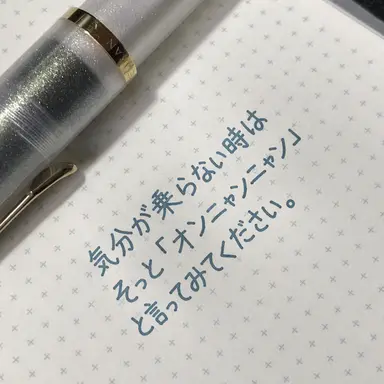 気分が乗らない時は
そっと「オンニャンニャン」
と言ってみてください。